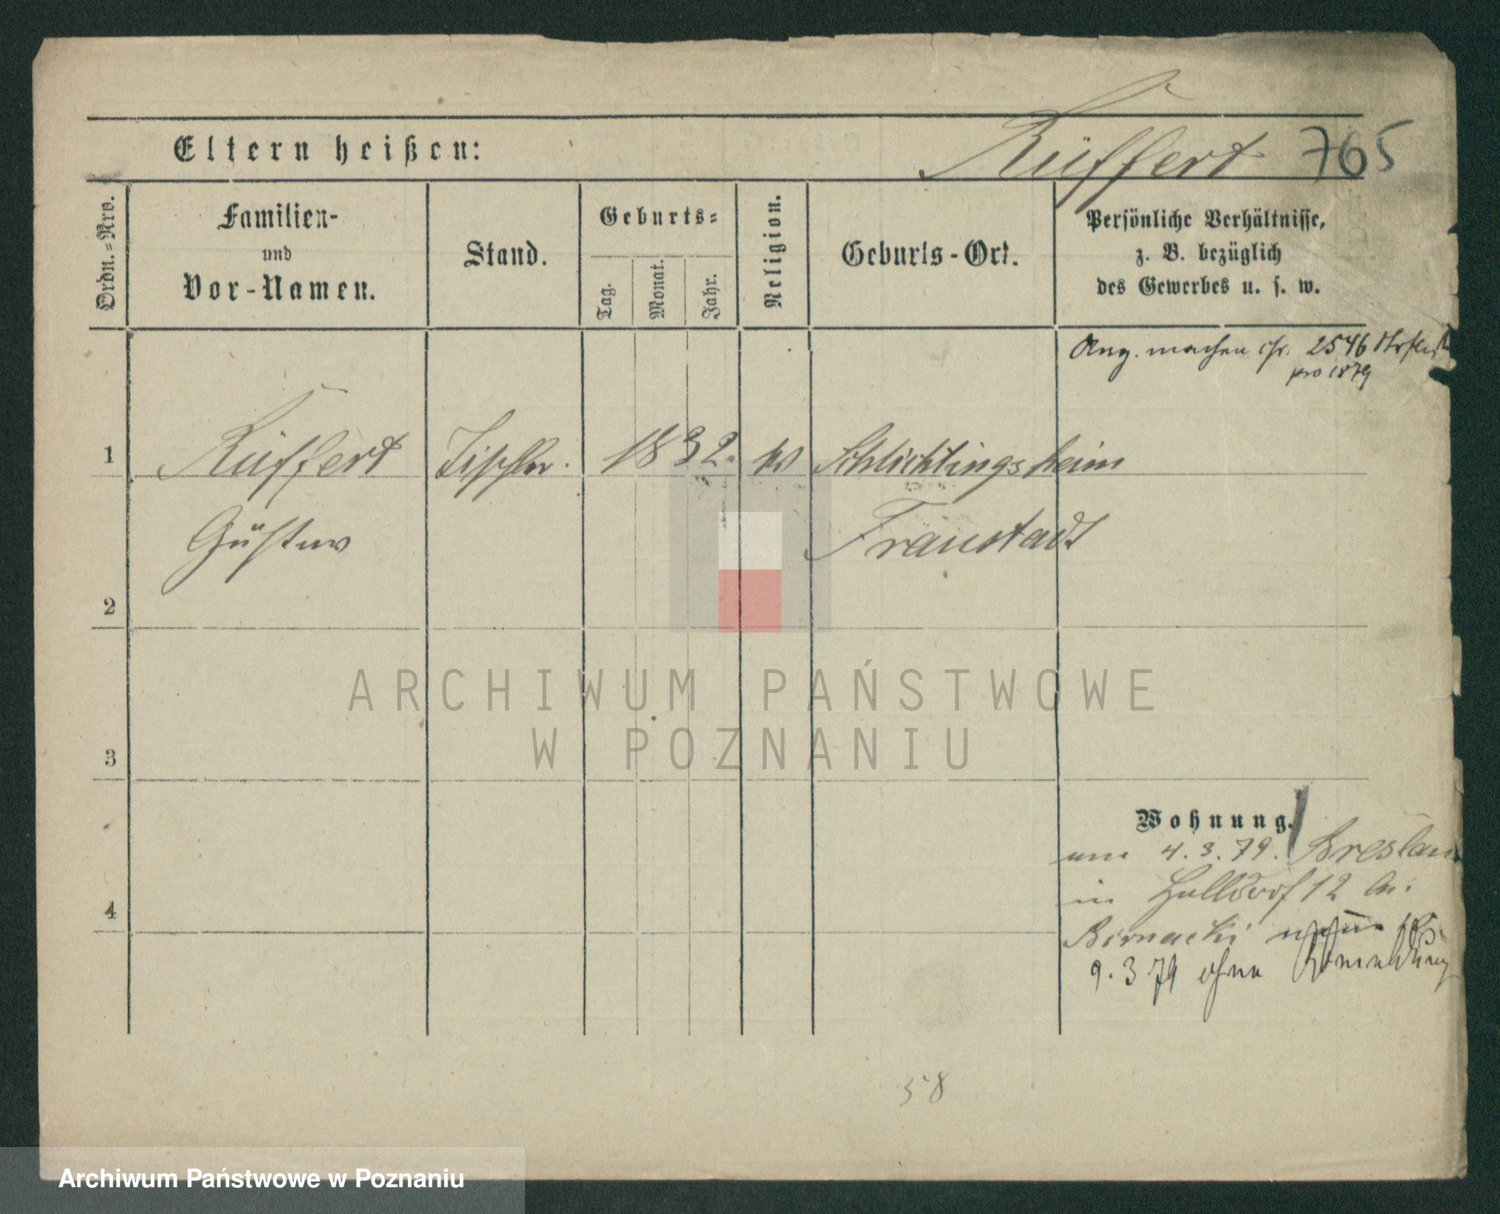 Rüffert 765
Eltern heißen:
Ordn.-Nro.
Familien-
und
Vor-Namen.
Stand.
Geburts-
Tag.
Monat.
Jahr.
Religion.
Geburts-Ort.
Persönliche Verhältnisse,
z. B. bezüglich
des Gewerbes u. s. w.
Ang. 2546
pro 1879
1 Rüffert Tischler. 1832. Schlichtingsheim
Gustav Fraustadt
2
ARCHIWUM PAŃSTWOWE
W POZNANIU
3
Wohnung.
4.3.79. Breslau
in Halldorf 12 bei
4
Biernacki
9.3 79 ohne Abmeldung
58
Archiwum Państwowe w Poznaniu